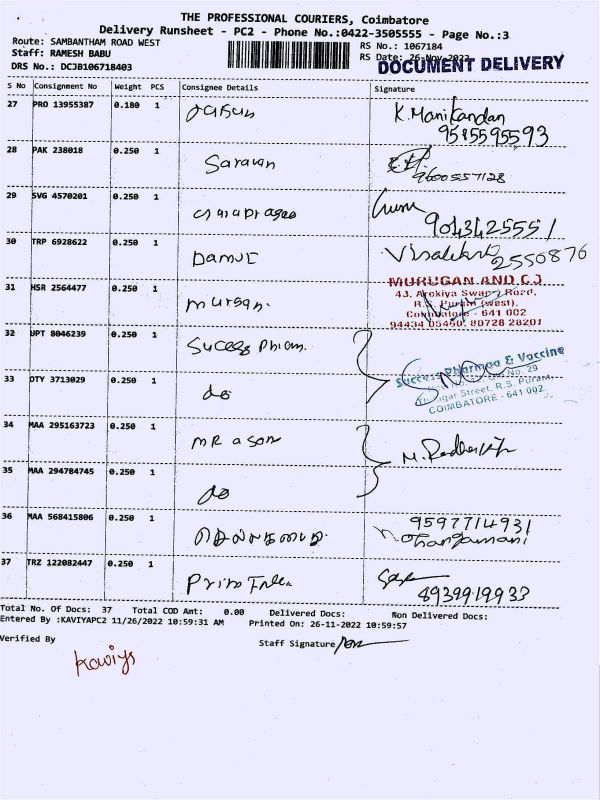 THE PROFESSIONAL COURIERS, Coimbatore
Delivery Runsheet - PC2 - Phone No.:0422-3505555 - Page No.:3
Route: SAMBANTHAM ROAD WEST
RS No.: 1067184
Staff: RAMESH BABU
RS Date: 26-Nov-2022
DRS No.: DCJB106718403
DOCUMENT DELIVERY
S No Consignment No Weight PCS Consignee Details Signature
27 PRO 13955387 0.180 1 K. Manikandan
9585595593
28 PAK 238018 0.250 1 Saravan
9600557128
29 SVG 4570201 0.250 1
9043425551
30 TRP 6928622 0.250 1
2550876
31 HSR 2564477 0.250 1 Murgan.
MURUGAN AND CO
43, Arokiya Swamy Road,
R.S. Puram (west),
Coimbatore - 641 002
94434 05450, 80728 28201
32 UPT 8046239 0.250 1 Sucess Pharm.
Success Pharmaa & Vaccine
No. 29
Street, R.S. Puram,
COIMBATORE - 641 002
33 DTY 3713029 0.250 1 do
34 MAA 295163723 0.250 1
35 MAA 294784745 0.250 1 do
36 MAA 568415806 0.250 1 9597714931
37 TRZ 122082447 0.250 1
4939919933
Total No. Of Docs: 37 Total COD Amt: 0.00 Delivered Docs: Non Delivered Docs:
Entered By :KAVIYAPC2 11/26/2022 10:59:31 AM Printed On: 26-11-2022 10:59:57
Verified By Staff Signature
kaviya